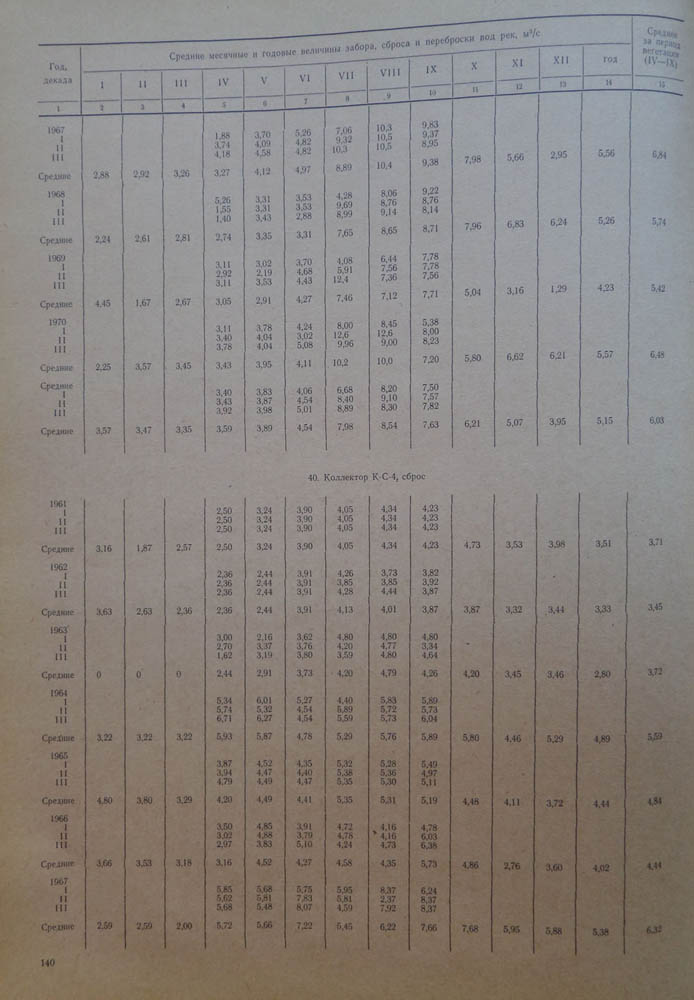 Год, декада
Средние месячные и годовые величины забора, сброса и переброски вод рек, м³/с
Среднее за период вегетации (IV—IX)
I II III IV V VI VII VIII IX X XI XII год
1 2 3 4 5 6 7 8 9 10 11 12 13 14 15
1967
I 1,88 3,70 5,26 7,06 10,3 9,83
II 3,74 4,09 4,82 9,32 10,5 9,37
III 4,18 4,58 4,82 10,3 10,5 8,95
Средние 2,88 2,92 3,26 3,27 4,12 4,97 8,89 10,4 9,38 7,98 5,66 2,95 5,56 6,84
1968
I 5,26 3,31 3,53 4,28 8,06 9,22
II 1,55 3,31 3,53 9,69 8,76 8,76
III 1,40 3,43 2,88 8,99 9,14 8,14
Средние 2,24 2,61 2,81 2,74 3,35 3,31 7,65 8,65 8,71 7,96 6,83 6,24 5,26 5,74
1969
I 3,11 3,02 3,70 4,08 6,44 7,78
II 2,92 2,19 4,68 5,91 7,56 7,78
III 3,11 3,53 4,43 12,4 7,36 7,56
Средние 4,45 1,67 2,67 3,05 2,91 4,27 7,46 7,12 7,71 5,04 3,16 1,29 4,23 5,42
1970
I 3,11 3,78 4,24 8,00 8,45 5,38
II 3,40 4,04 3,02 12,6 12,6 8,00
III 3,78 4,04 5,08 9,96 9,00 8,23
Средние 2,25 3,57 3,45 3,43 3,95 4,11 10,2 10,0 7,20 5,80 6,62 6,21 5,57 6,48
Средние
I 3,40 3,83 4,06 6,68 8,20 7,50
II 3,43 3,87 4,54 8,40 9,10 7,57
III 3,92 3,98 5,01 8,89 8,30 7,82
Средние 3,57 3,47 3,35 3,59 3,89 4,54 7,98 8,54 7,63 6,21 5,07 3,95 5,15 6,03
40. Коллектор К-С-4, сброс
1961
I 2,50 3,24 3,90 4,05 4,34 4,23
II 2,50 3,24 3,90 4,05 4,34 4,23
III 2,50 3,24 3,90 4,05 4,34 4,23
Средние 3,16 1,87 2,57 2,50 3,24 3,90 4,05 4,34 4,23 4,73 3,53 3,98 3,51 3,71
1962
I 2,36 2,44 3,91 4,26 3,73 3,82
II 2,36 2,44 3,91 3,85 3,85 3,92
III 2,36 2,44 3,91 4,28 4,44 3,87
Средние 3,63 2,63 2,36 2,36 2,44 3,91 4,13 4,01 3,87 3,87 3,32 3,44 3,33 3,45
1963
I 3,00 2,16 3,62 4,80 4,80 4,80
II 2,70 3,37 3,76 4,20 4,77 3,34
III 1,62 3,19 3,80 3,59 4,80 4,64
Средние 0 0 0 2,44 2,91 3,73 4,20 4,79 4,26 4,20 3,45 3,46 2,80 3,72
1964
I 5,34 6,01 5,27 4,40 5,83 5,89
II 5,74 5,32 4,54 5,89 5,72 5,73
III 6,71 6,27 4,54 5,59 5,73 6,04
Средние 3,22 3,22 3,22 5,93 5,87 4,78 5,29 5,76 5,89 5,80 4,46 5,29 4,89 5,59
1965
I 3,87 4,52 4,35 5,32 5,28 5,49
II 3,94 4,47 4,40 5,38 5,36 4,97
III 4,79 4,49 4,47 5,35 5,30 5,11
Средние 4,80 3,80 3,29 4,20 4,49 4,41 5,35 5,31 5,19 4,48 4,11 3,72 4,44 4,84
1966
I 3,50 4,85 3,91 4,72 4,16 4,78
II 3,02 4,88 3,79 4,78 4,16 6,03
III 2,97 3,83 5,10 4,24 4,73 6,38
Средние 3,66 3,53 3,18 3,16 4,52 4,27 4,58 4,35 5,73 4,86 2,76 3,60 4,02 4,44
1967
I 5,85 5,68 5,75 5,95 8,37 6,24
II 5,62 5,81 7,83 5,81 2,37 8,37
III 5,68 5,48 8,07 4,59 7,92 8,37
Средние 2,59 2,59 2,00 5,72 5,66 7,22 5,45 6,22 7,66 7,68 5,95 5,88 5,38 6,32
140